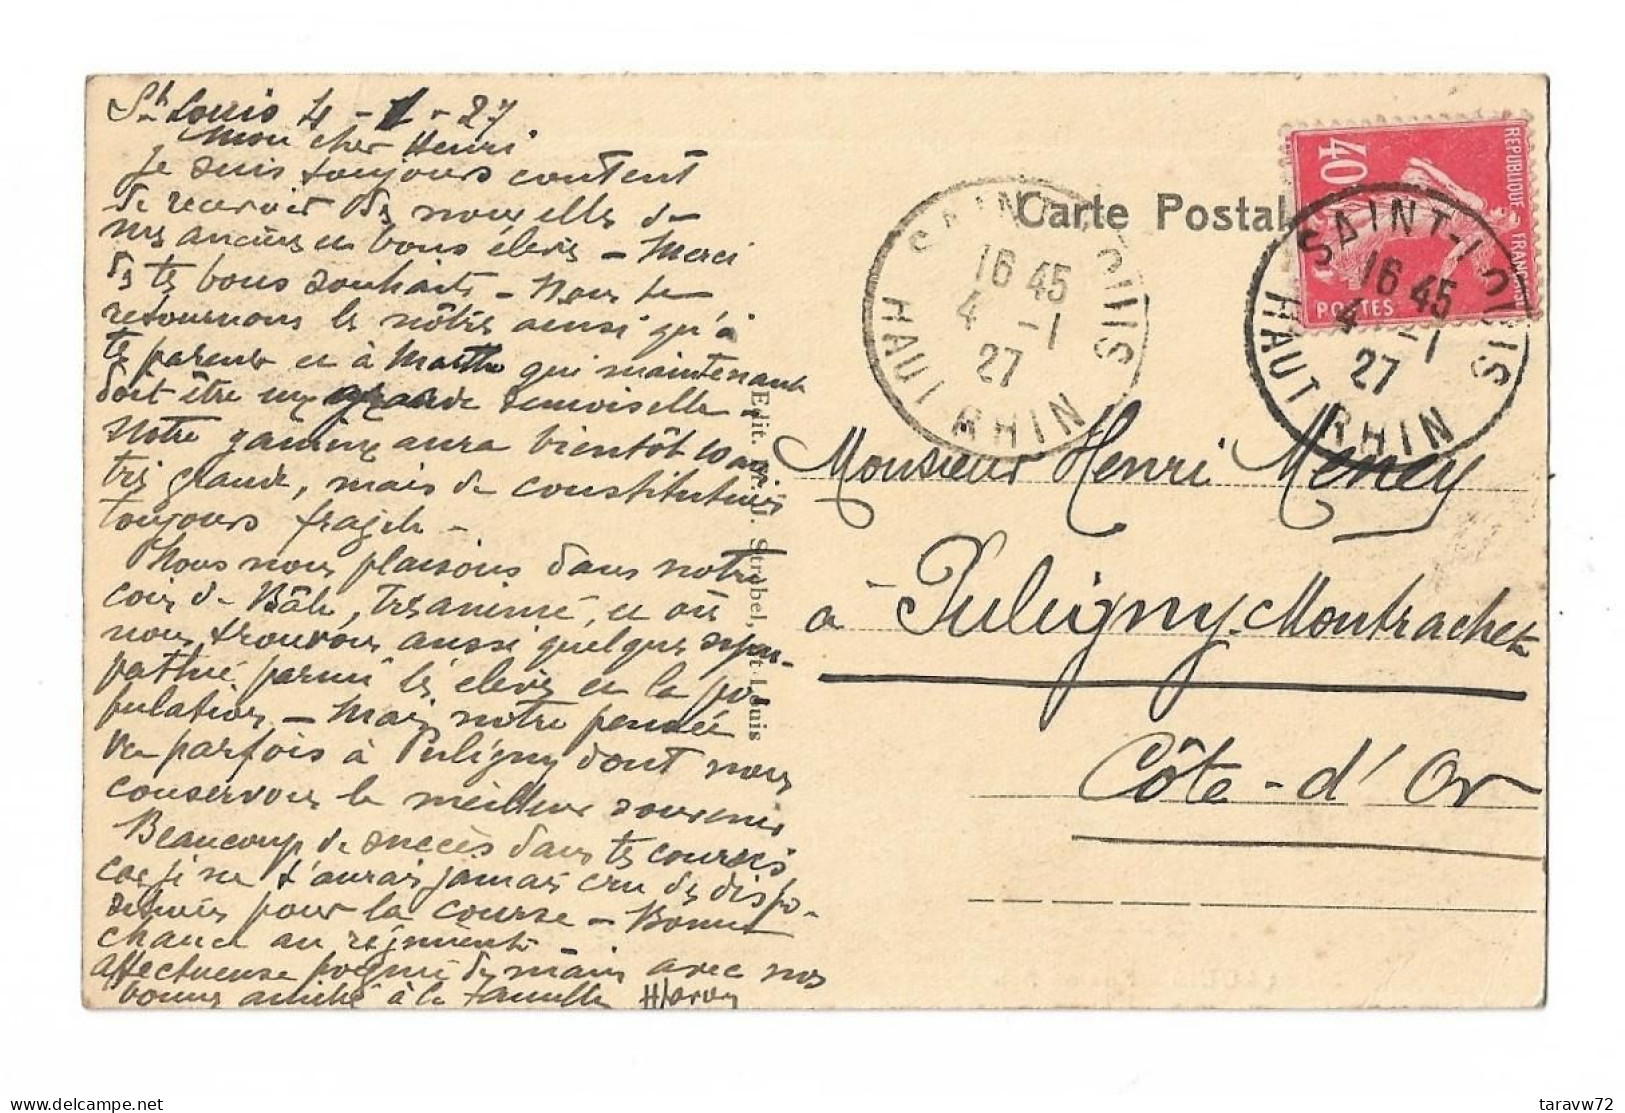 St Louis 4 - 1 - 27
Mon cher Henri
Je suis toujours content
de recevoir des nouvelles de
mes anciens et bons élèves - Merci
de tes bons souhaits - Nous te
retournons les nôtres ainsi qu'à
tes parents et à Marthe qui maintenant
doit être une grande demoiselle -
Notre gamine aura bientôt 10 ans
très grande, mais de constitution
toujours fragile -
Nous nous plaisons dans notre
coin de Bâle, très animé, et où
nous trouvons aussi quelques sym-
pathies parmi les élèves et la po-
pulation - Mais notre pensée
va parfois à Puligny dont nous
conservons le meilleur souvenir
Beaucoup de succès dans tes courses
car je ne t'aurais jamais cru des dispo-
sitions pour la course - Bonne
chance au régiment -
Affectueuse poignée de mains avec nos
bonnes amitiés à la famille
Edit. Strobel, St-Louis
Carte Postale
SAINT-LOUIS
16 45
4 -1
27
HAUT RHIN
REPUBLIQUE FRANCAISE
40
POSTES
SAINT-LOUIS
16 45
4 -1
27
HAUT RHIN
Monsieur Henri Meney
à Puligny-Montrachet
Côte-d'Or
taravw72